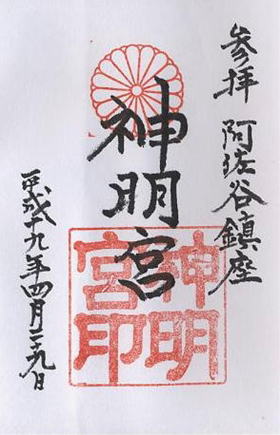 参拝 阿佐谷鎮座
神明宮
神明
宮印
平成十九年四月二十九日